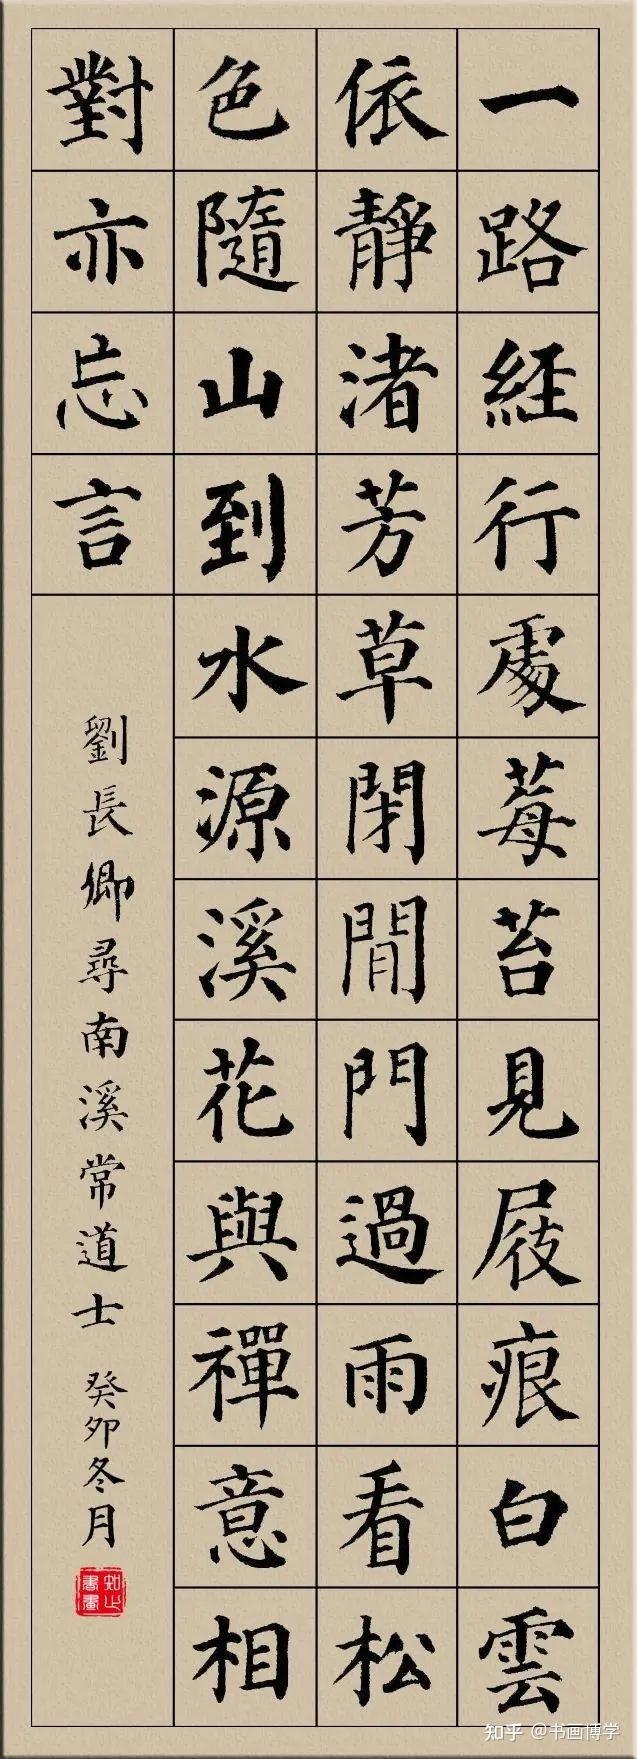 一路經行處莓苔見屐痕白雲
依靜渚芳草閉閒門過雨看松
色隨山到水源溪花與禪意相
對亦忘言
劉長卿尋南溪常道士 癸卯冬月
知止書畫
知乎 @书画博学